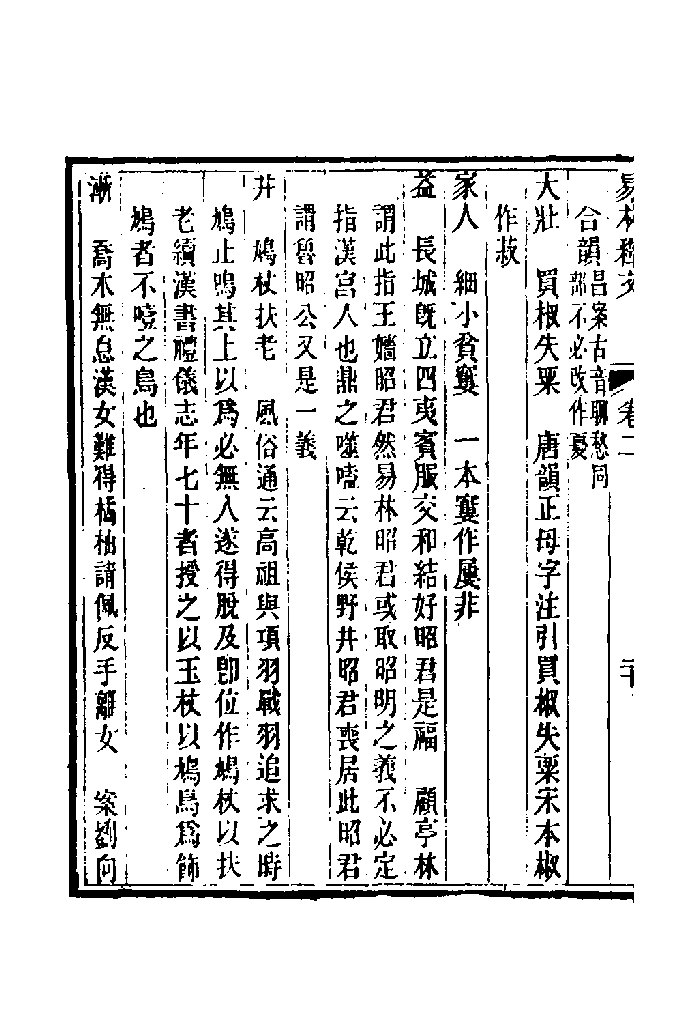 易林釋文　卷二　二十
合韻呂案古音聊愁同
部不必改作憂
大壯　買椒失粟　唐韻正母字注引買椒失粟宋本椒
作菽
家人　細小貧窶　一本窶作屢非
益　長城旣立四夷賓服交和結好昭君是福　顧亭林
謂此指王嬙昭君然易林昭君或取昭明之義不必定
指漢宮人也鼎之噬嗑云乾侯野井昭君喪居此昭君
謂魯昭公又是一義
井　鳩杖扶老　風俗通云高祖與項羽戰羽追求之時
鳩止鳴其上以爲必無人遂得脫及卽位作鳩杖以扶
老續漢書禮儀志年七十者授之以玉杖以鳩鳥爲飾
鳩者不噎之鳥也
漸　喬木無息漢女難得橘柚請佩反手離女　案劉向